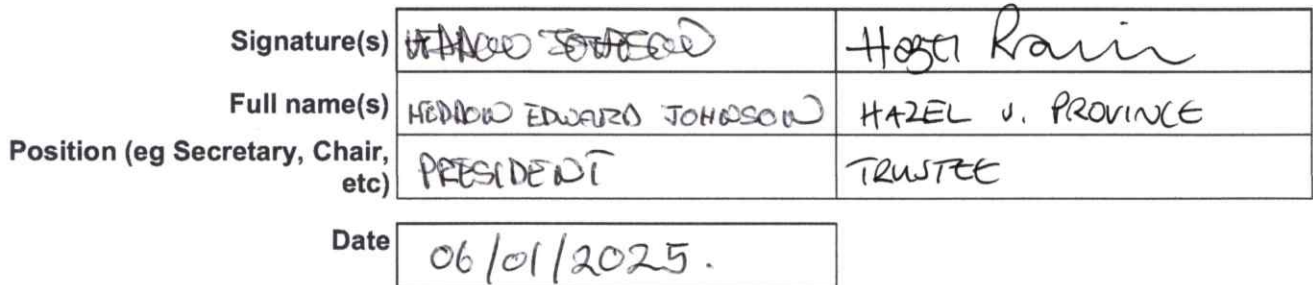 Signature(s) Hazel
Full name(s) HEDDOW EDWARD JOHNSON HAZEL J. PROVINCE
Position (eg Secretary, Chair,
etc) PRESIDENT TRUSTEE
Date 06/01/2025.